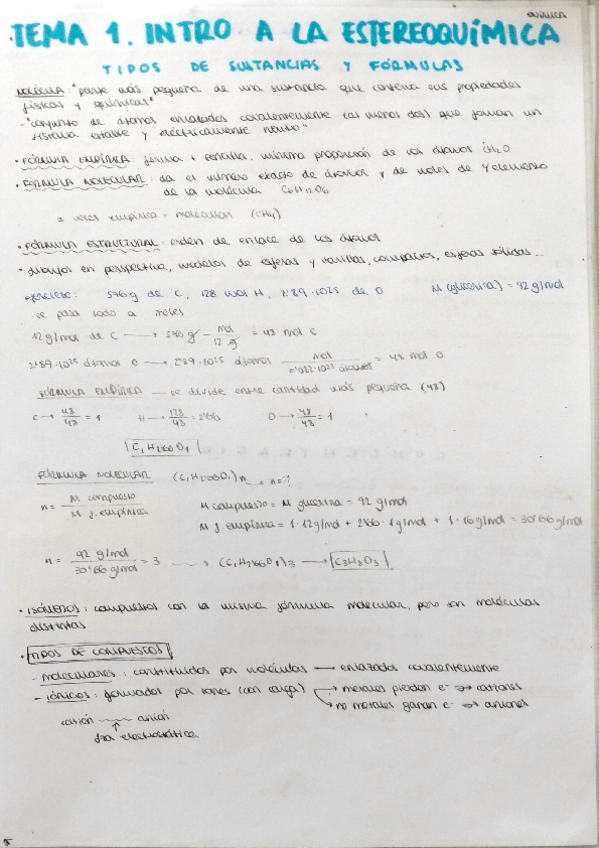 QUÍMICA
TEMA 1. INTRO A LA ESTEREOQUÍMICA
TIPOS DE SUSTANCIAS Y FÓRMULAS
MOLÉCULA: "parte más pequeña de una sustancia que conserva sus propiedades
físicas y químicas"
- "conjunto de átomos enlazados covalentemente (al menos dos) que forman un
sistema estable y eléctricamente neutro"
• FÓRMULA EMPÍRICA: forma + sencilla, mínima proporción de los átomos CH2O
• FÓRMULA MOLECULAR: da el número exacto de átomos y de moles de y elemento
de la molécula C6H12O6
a veces empírica = molecular (CH4)
• FÓRMULA ESTRUCTURAL: orden de enlace de los átomos
• dibujos en perspectiva, modelos de esferas y varillas, compactos, esferas sólidas...
ejercicio: 576 g de C, 128 mol H, 2'89·1025 de O M(glicerina) = 92 g/mol
se pasa todo a moles
12 g/mol de C → 576 g · mol / 12 g = 48 mol C
2'89·10²⁵ átomos O → 2'89·10²⁵ átomos · mol / 6'022·10²³ átomos = 48 mol O
FÓRMULA EMPÍRICA — se divide entre cantidad más pequeña (48)
C → 48/48 = 1 H → 128/48 = 2'66 O → 48/48 = 1
C1H2'66O1
FÓRMULA MOLECULAR (C1H2'66O1)n n=?
n = M compuesto / M f. empírica M compuesto = M glicerina = 92 g/mol
M f. empírica = 1·12 g/mol + 2'66·1 g/mol + 1·16 g/mol = 30'66 g/mol
n = 92 g/mol / 30'66 g/mol = 3 → (C1H2'66O1)3 → C3H8O3
• ISÓMEROS: compuestos con la misma fórmula molecular, pero son moléculas
distintas
• TIPOS DE COMPUESTOS
- moleculares: constituidos por moléculas → enlazados covalentemente
- iónicos: formados por iones (con carga) → metales pierden e- → cationes
→ no metales ganan e- → aniones
catión anión
↑
fza electrostática